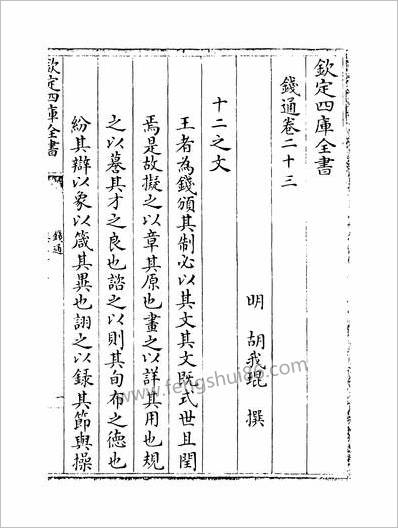 欽定四庫全書
錢通卷二十三
明 胡我琨 撰
十二之文
王者為錢頒其制必以其文其文既式世且閏
焉是故擬之以章其原也畫之以詳其用也規
之以墓其才之良也諮之以則其旬布之德也
紛其辯以象以箴其異也詡之以録其節與操
欽定四庫全書
錢通
www.fengshui86.com